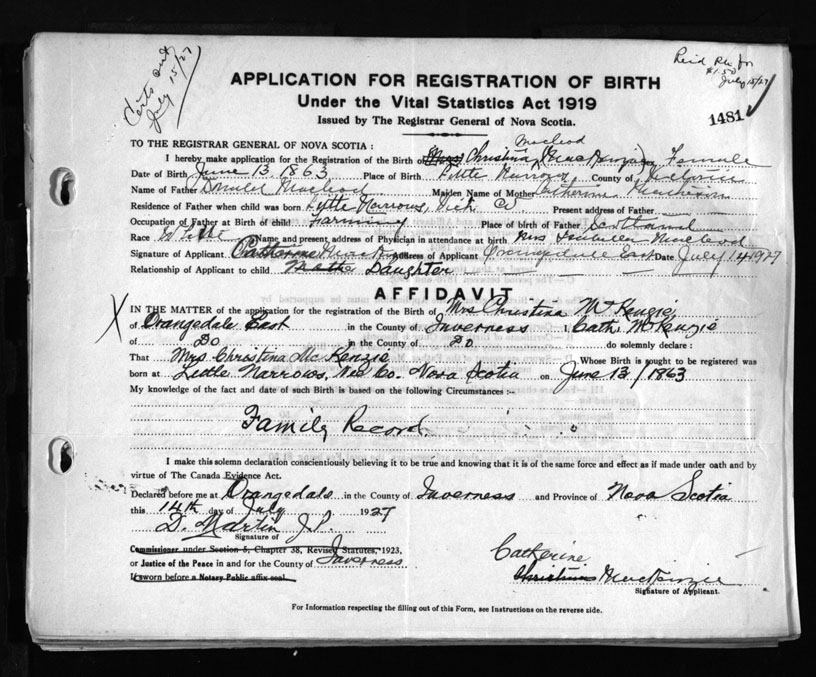 Certs sent
July 15/27
$1.50
July 15/27
APPLICATION FOR REGISTRATION OF BIRTH
Under the Vital Statistics Act 1919
Issued by The Registrar General of Nova Scotia.
1481
TO THE REGISTRAR GENERAL OF NOVA SCOTIA :
Macleod
I hereby make application for the Registration of the Birth of Christina MacKenzie Female
Date of Birth June 13. 1863 Place of Birth Little Narrows, County of Victoria
Name of Father Donald Macleod Maiden Name of Mother Catherine
Residence of Father when child was born Little Narrows, Vict Co Present address of Father
Occupation of Father at Birth of child Farming Place of birth of Father Scotland
Race White Name and present address of Physician in attendance at birth Mrs Isabella Macleod
Signature of Applicant Catherine MacKenzie Address of Applicant Orangedale East Date July 14 1927
Relationship of Applicant to child Mother Daughter
AFFIDAVIT
X IN THE MATTER of the application for the registration of the Birth of Mrs Christina McKenzie
of Orangedale East in the County of Inverness I, Cath. McKenzie
of Do in the County of Do do solemnly declare :
That Mrs Christina McKenzie Whose Birth is sought to be registered was
born at Little Narrows, Vic Co. Nova Scotia on June 13/1863
My knowledge of the fact and date of such Birth is based on the following Circumstances :-
Family Record.
I make this solemn declaration conscientiously believing it to be true and knowing that it is of the same force and effect as if made under oath and by
virtue of The Canada Evidence Act.
Declared before me at Orangedale in the County of Inverness and Province of Nova Scotia
this 14th day of July 1927
D. Martin J.P.
Signature of
Commissioner under Section 5, Chapter 38, Revised Statutes, 1923,
or Justice of the Peace in and for the County of Inverness
If sworn before a Notary Public affix seal.
Catherine
Christina MacKenzie
Signature of Applicant.
For Information respecting the filling out of this Form, see Instructions on the reverse side.